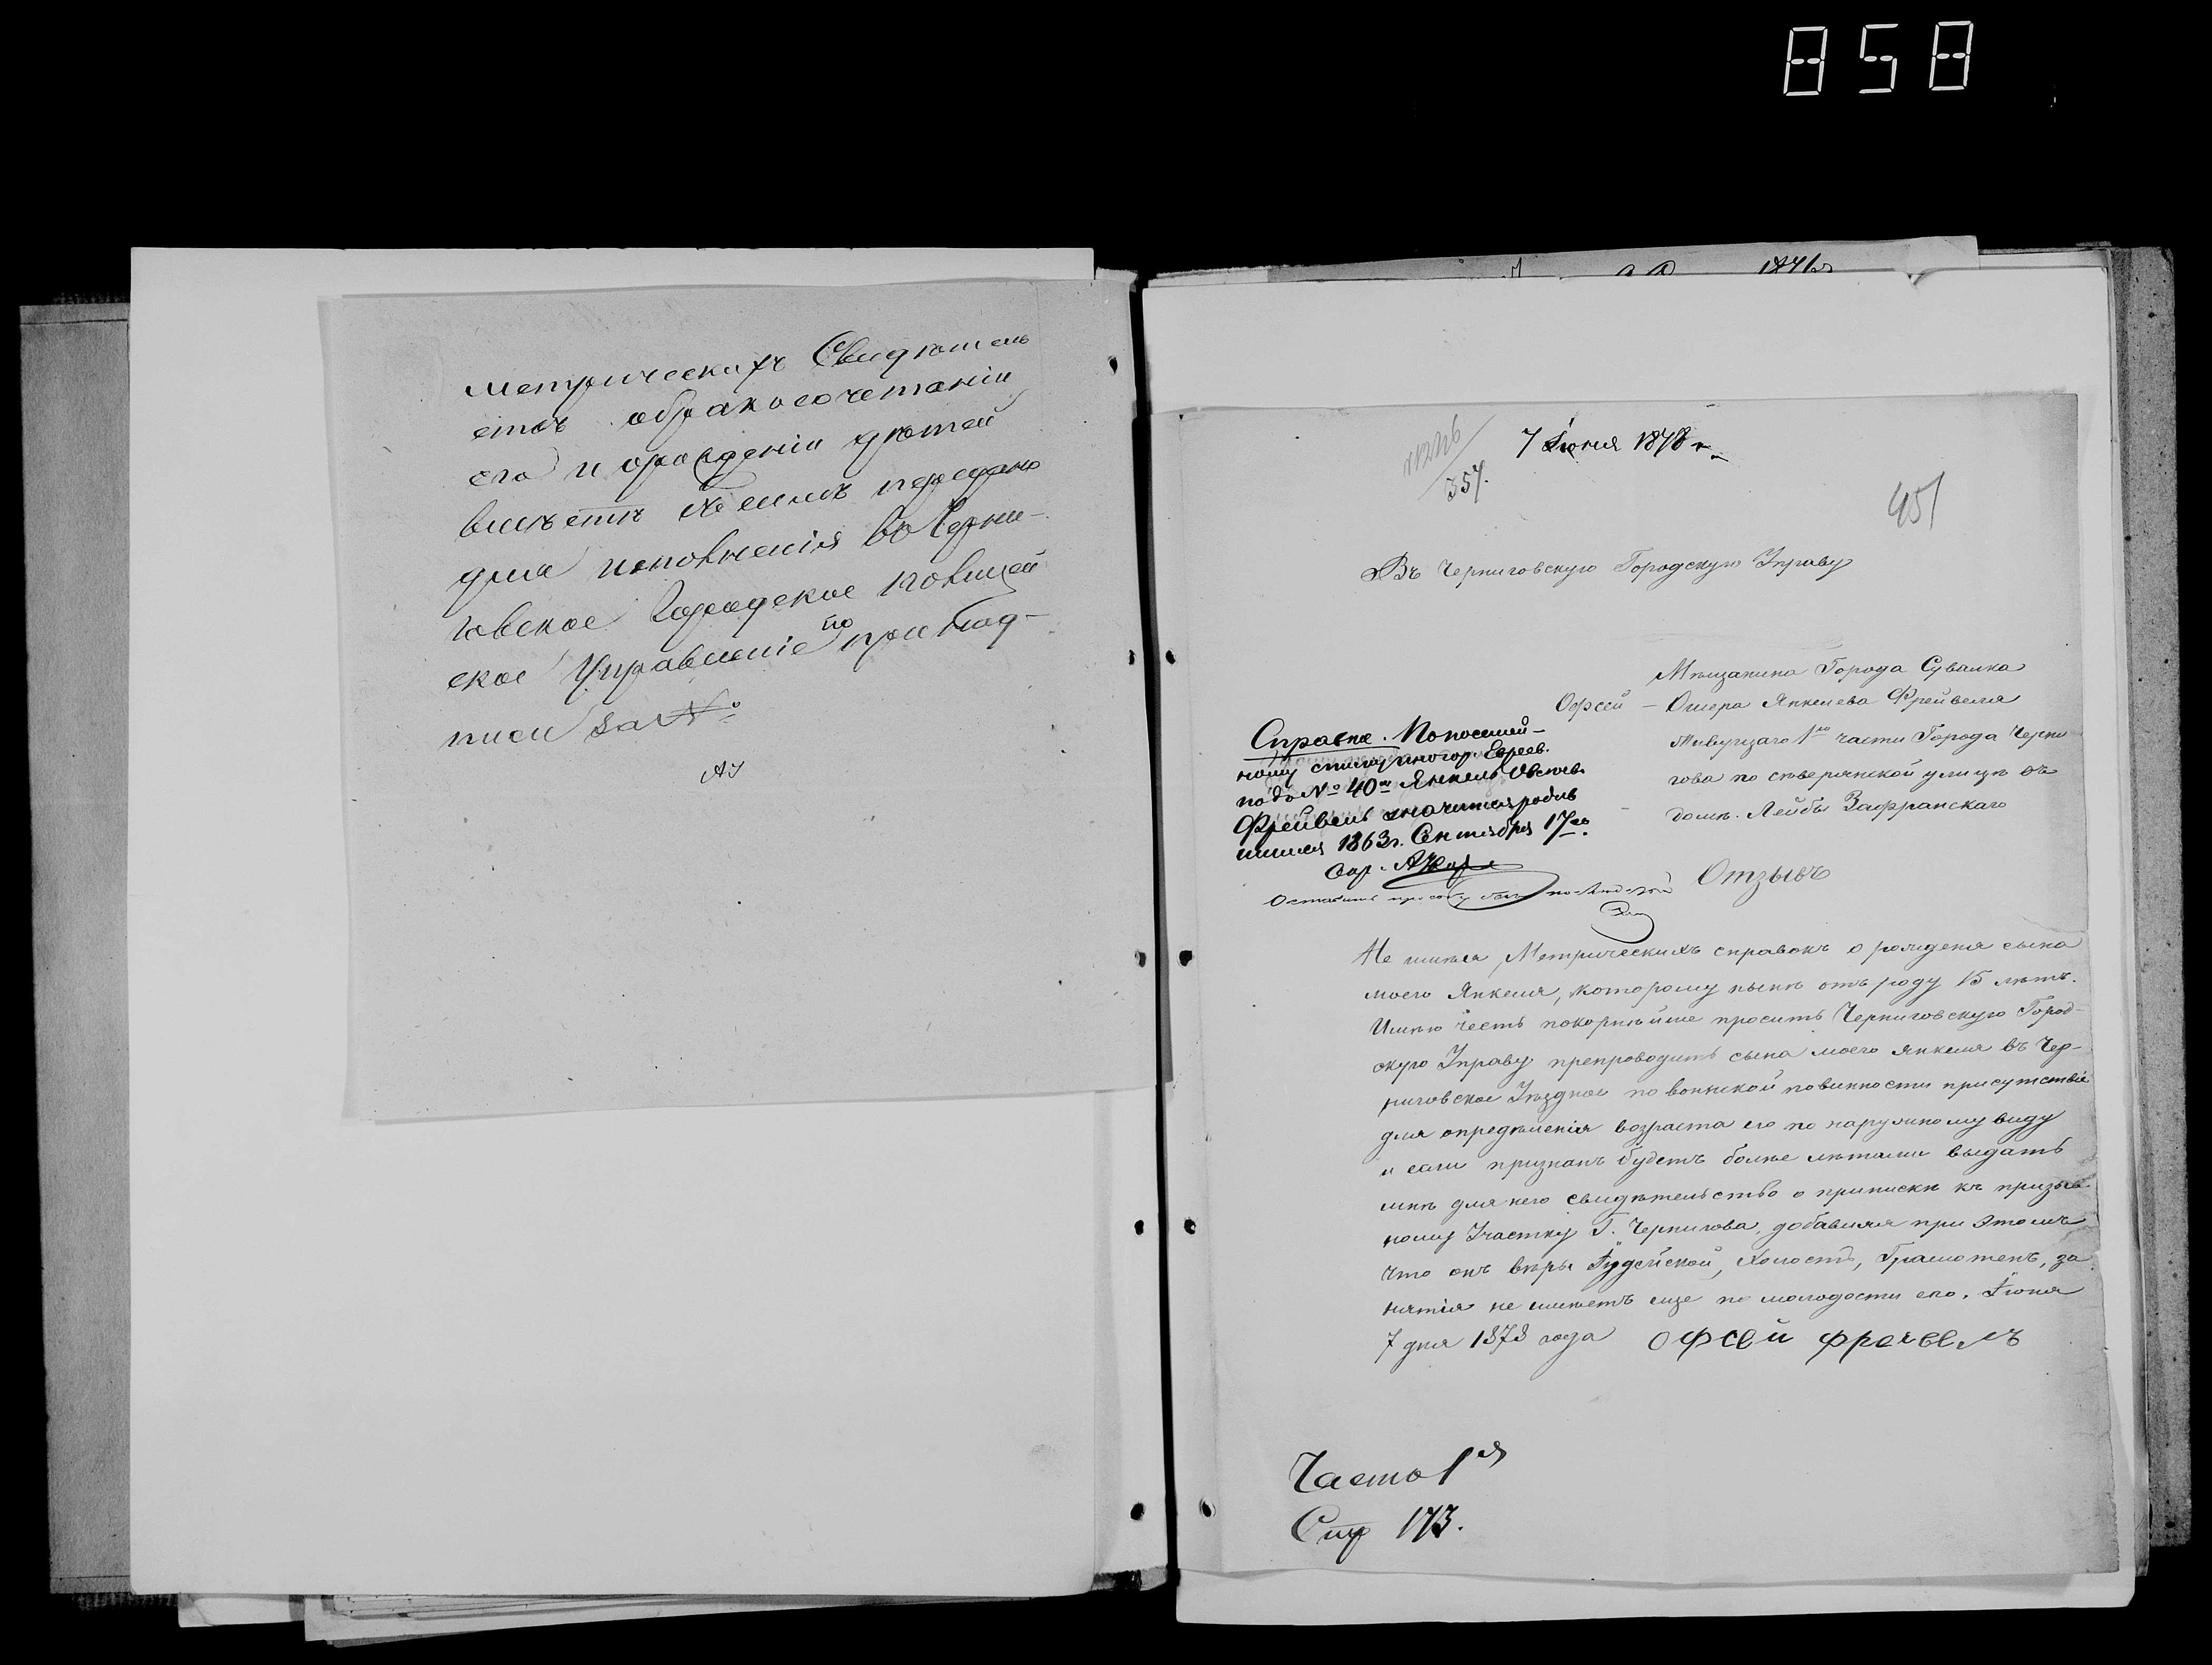 858
метрическихъ Свидѣтель
ствъ обракосочетаніи
его и орожденіи дѣтей
вмѣстѣ съ симъ передано
для исполненія въ Черни-
говское Городское полицей
ское Управленіе по при надписи
за №
7 Іюня 1878 г.
357.
451
Въ Черниговскую Городскую Управу
Мѣщанина Города Сувалка
Офсей — Ошера Янкелева Фрейвеля
Живущаго 1й части Города Черни
гова по сѣверянской улицѣ въ
домѣ Лейбы Зафранскаго
Справка. По посемей-
ному списку иногор. Евреев.
подъ № 40м Янкель Овсеев.
Фрейвель значится родив
шимся 1863 г. Сентября 17го.
Отзывъ
Не имѣя Метрическихъ справокъ о рожденя сына
моего Янкеля, которому нынѣ отъ роду 15 лѣтъ.
Имѣю честь покорнѣйше просить Черниговскую Город-
скую Управу препроводить сына моего янкеля въ Чер-
ниговское Уѣздное по воинской повинности присутствіе
для опредѣленія возраста его по наружному виду
и если признанъ будетъ болѣе лѣтами выдать
мнѣ для него свидѣтельство о припискѣ къ призыв
ному Участку Г. Чернигова, добавляя при этомъ
что онъ вѣры Іудейской, Холостъ, Грамотенъ, за
нятія не имѣетъ еще по молодости его. Іюня
7 дня 1878 года Офсей Фреивелъ
Часть 1я
Стр 173.